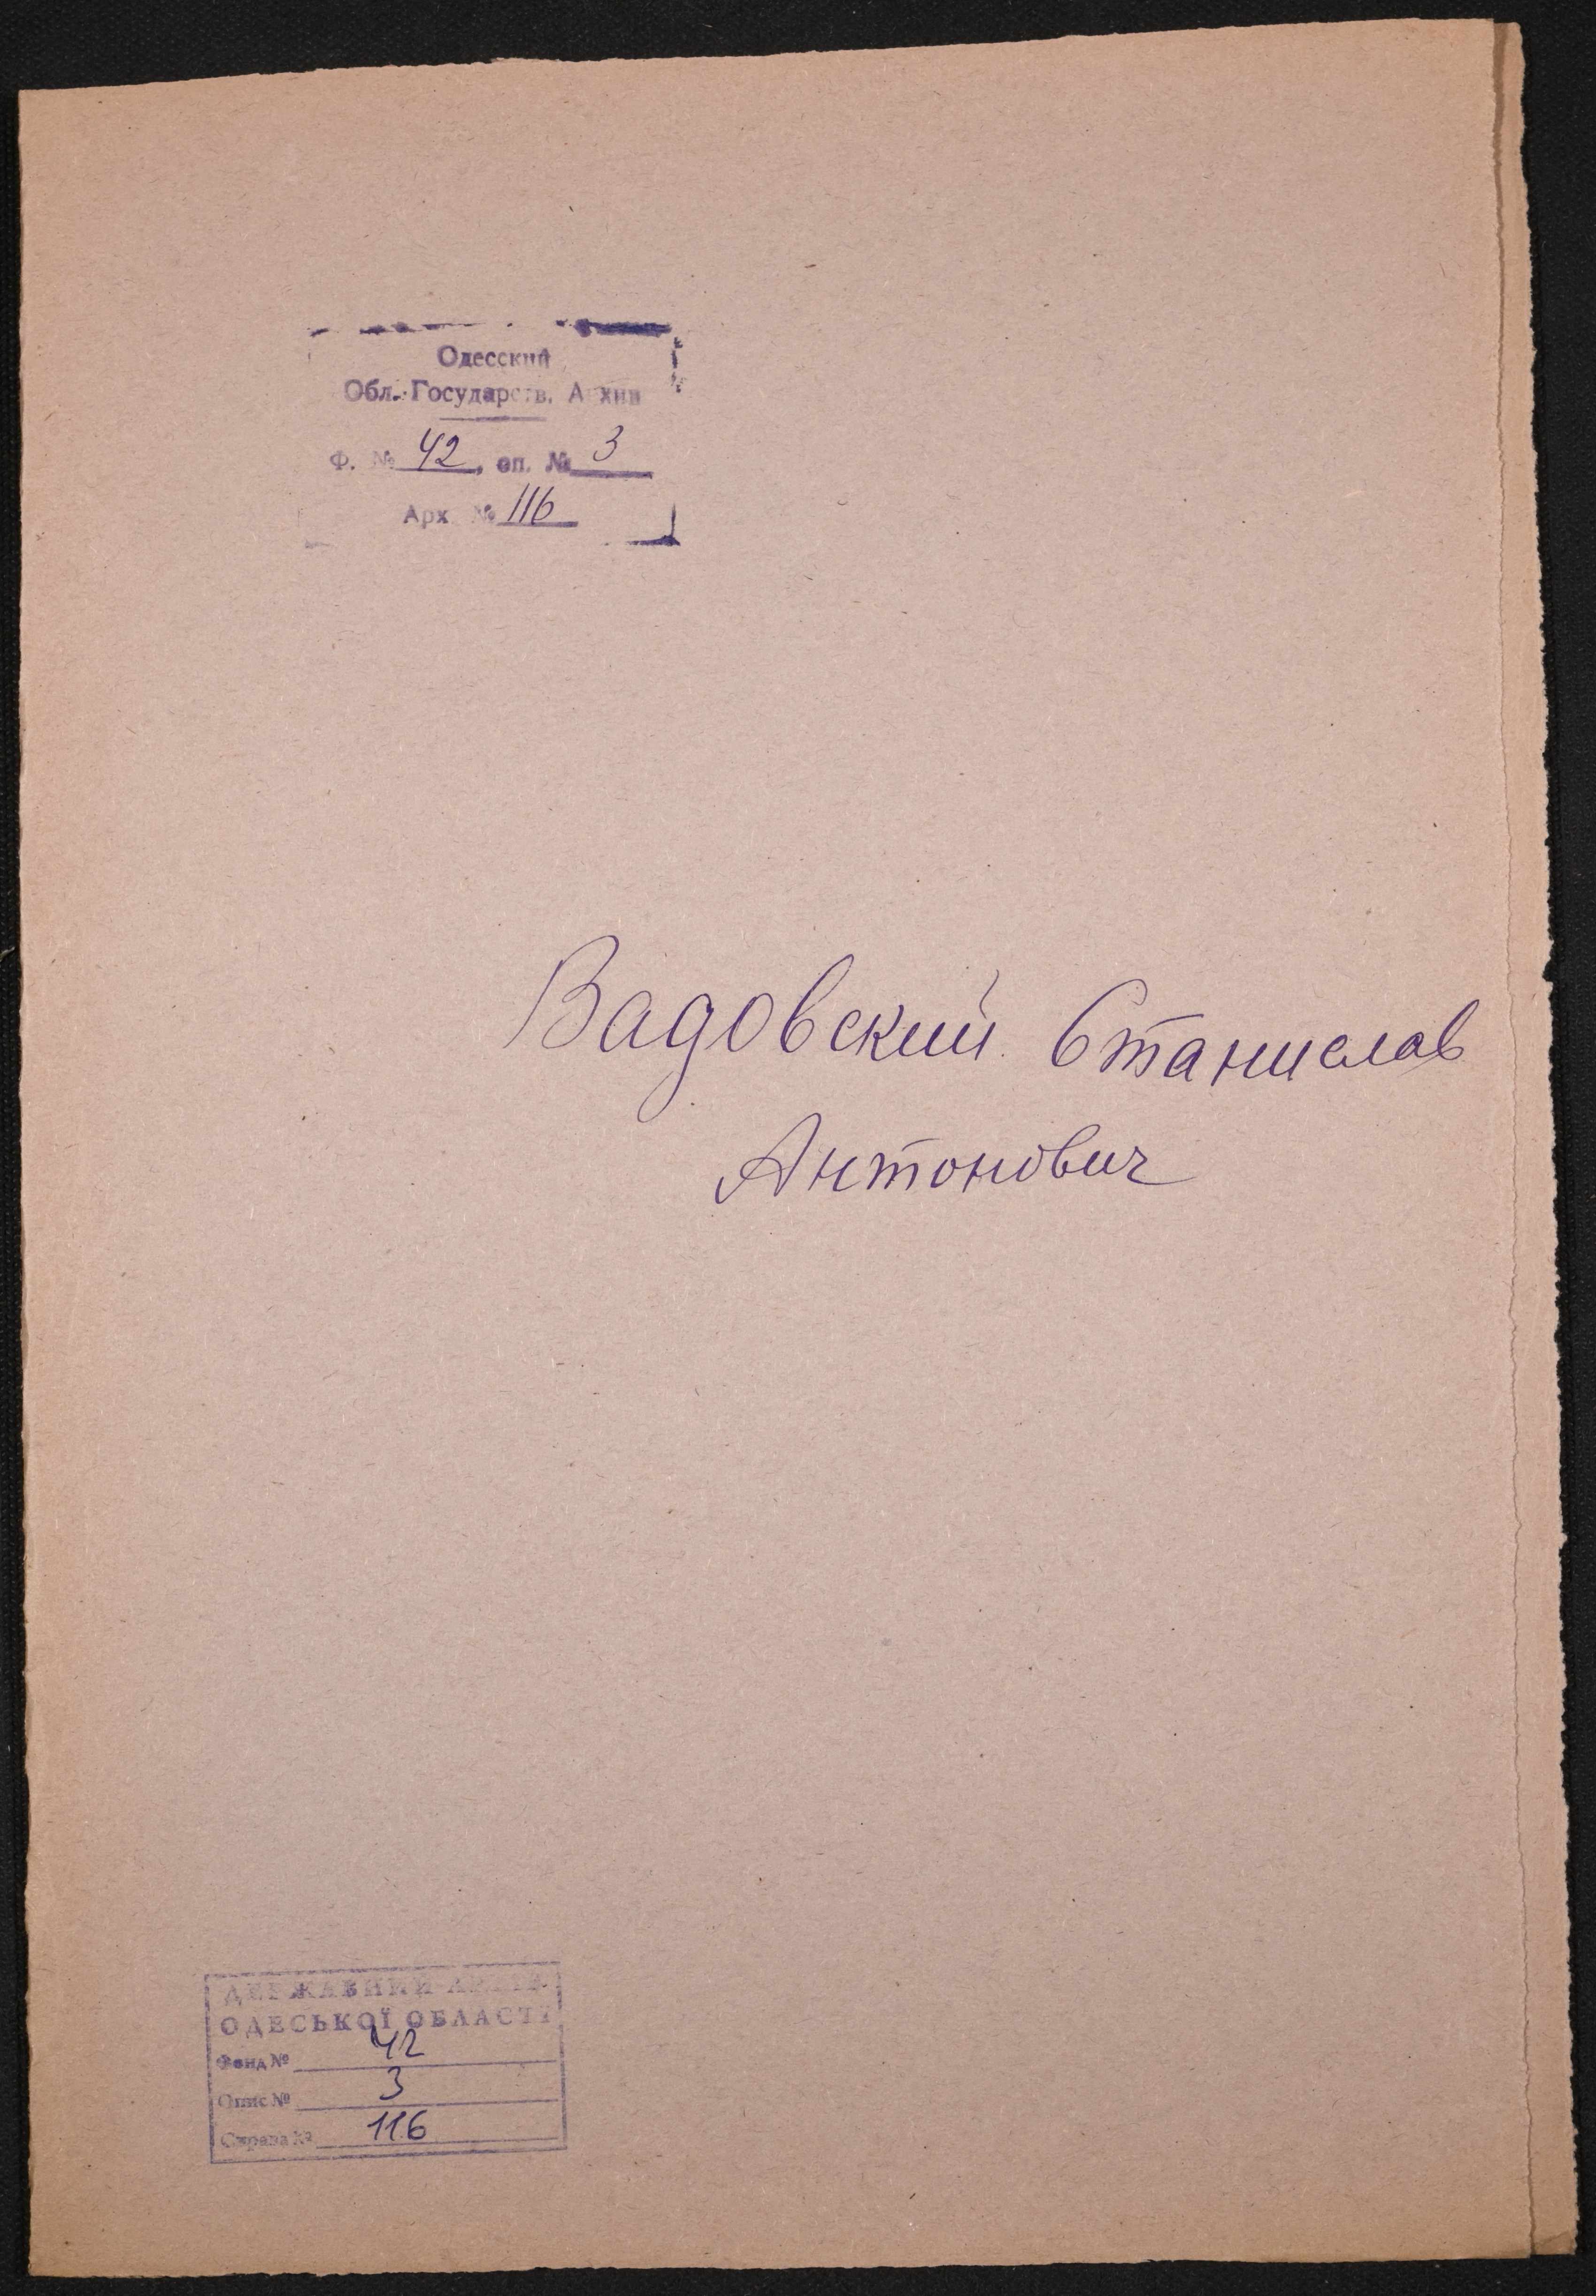 Одесский
Обл. Государств. Архив
Ф. № 42, оп. № 3
Арх. № 116
Вадовский Станислав
Антонович
ДЕРЖАВНИЙ АРХІВ
ОДЕСЬКОЇ ОБЛАСТІ
Фонд № 42
Опис № 3
Справа № 116